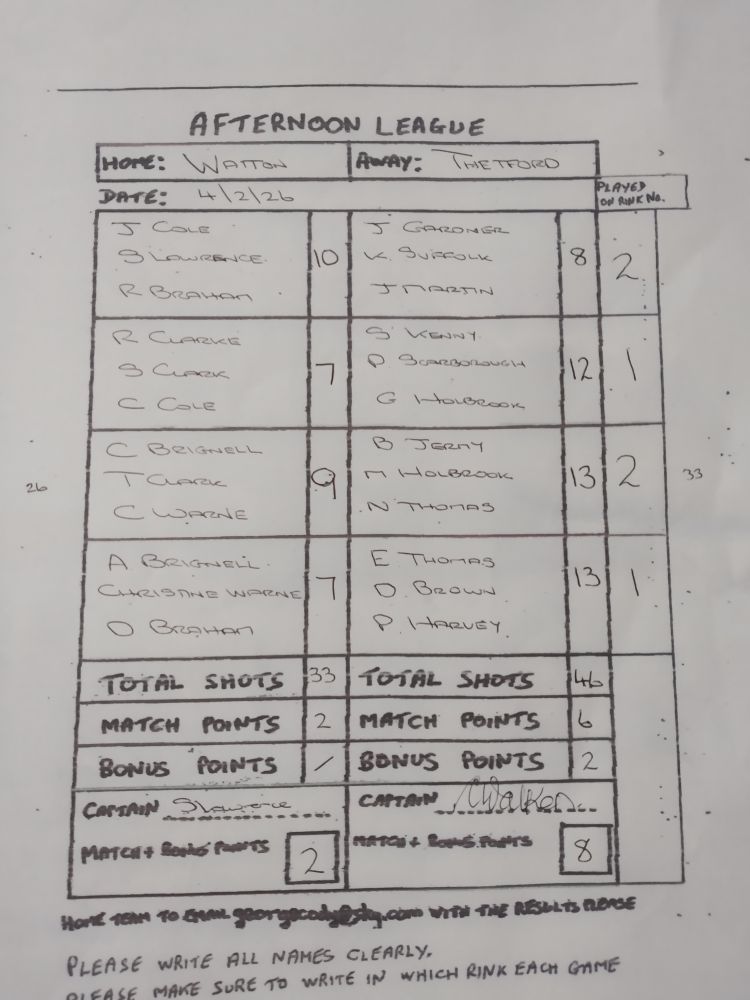 AFTERNOON LEAGUE
HOME: WATTON AWAY: THETFORD
DATE: 4/2/26 PLAYED ON RINK No.
J COLE J GARDNER
S LAWRENCE 10 K. SUFFOLK 8 2
R BRAHAM J MARTIN
R CLARKE S KENNY
S CLARK 7 P SCARBOROUGH 12 1
C COLE G HOLBROOK
C BRIGNELL B JERMY
26 T CLARK 9 M HOLBROOK 13 2 33
C WARNE N THOMAS
A BRIGNELL E THOMAS
CHRISTINE WARNE 7 D. BROWN 13 1
D BRAHAM P. HARVEY
TOTAL SHOTS 33 TOTAL SHOTS 46
MATCH POINTS 2 MATCH POINTS 6
BONUS POINTS / BONUS POINTS 2
CAPTAIN S Lawrence CAPTAIN
MATCH + BONUS POINTS 2 MATCH + BONUS POINTS 8
HOME TEAM TO EMAIL georgecody@sky.com WITH THE RESULTS PLEASE
PLEASE WRITE ALL NAMES CLEARLY.
PLEASE MAKE SURE TO WRITE IN WHICH RINK EACH GAME